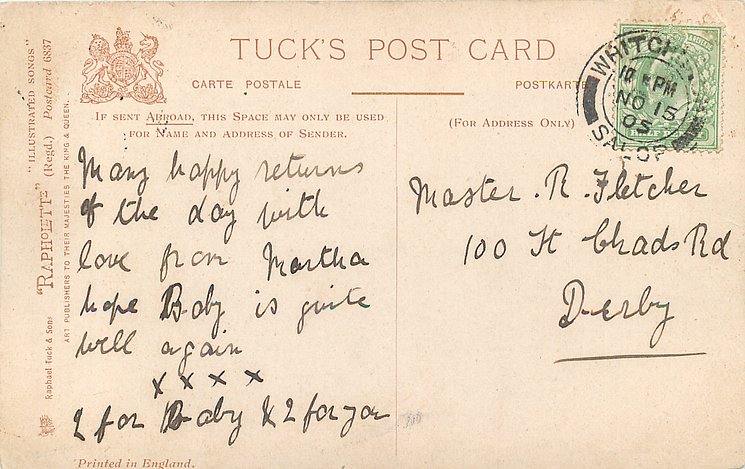 TUCK'S POST CARD
CARTE POSTALE
POSTKARTE
IF SENT ABROAD, THIS SPACE MAY ONLY BE USED
FOR NAME AND ADDRESS OF SENDER.
(FOR ADDRESS ONLY)
"ILLUSTRATED SONGS"
"RAPHOLETTE" (Regd.) Postcard 6837
Raphael Tuck & Sons
ART PUBLISHERS TO THEIR MAJESTIES THE KING & QUEEN.
WHITCH
PM
NO 18
05
SALOP
Many happy returns
of the day with
love from Martha
hope Baby is quite
well again
x x x x
2 for Baby & 2 for you
Master. R. Fletcher
100 St Chads Rd
Derby
Printed in England.